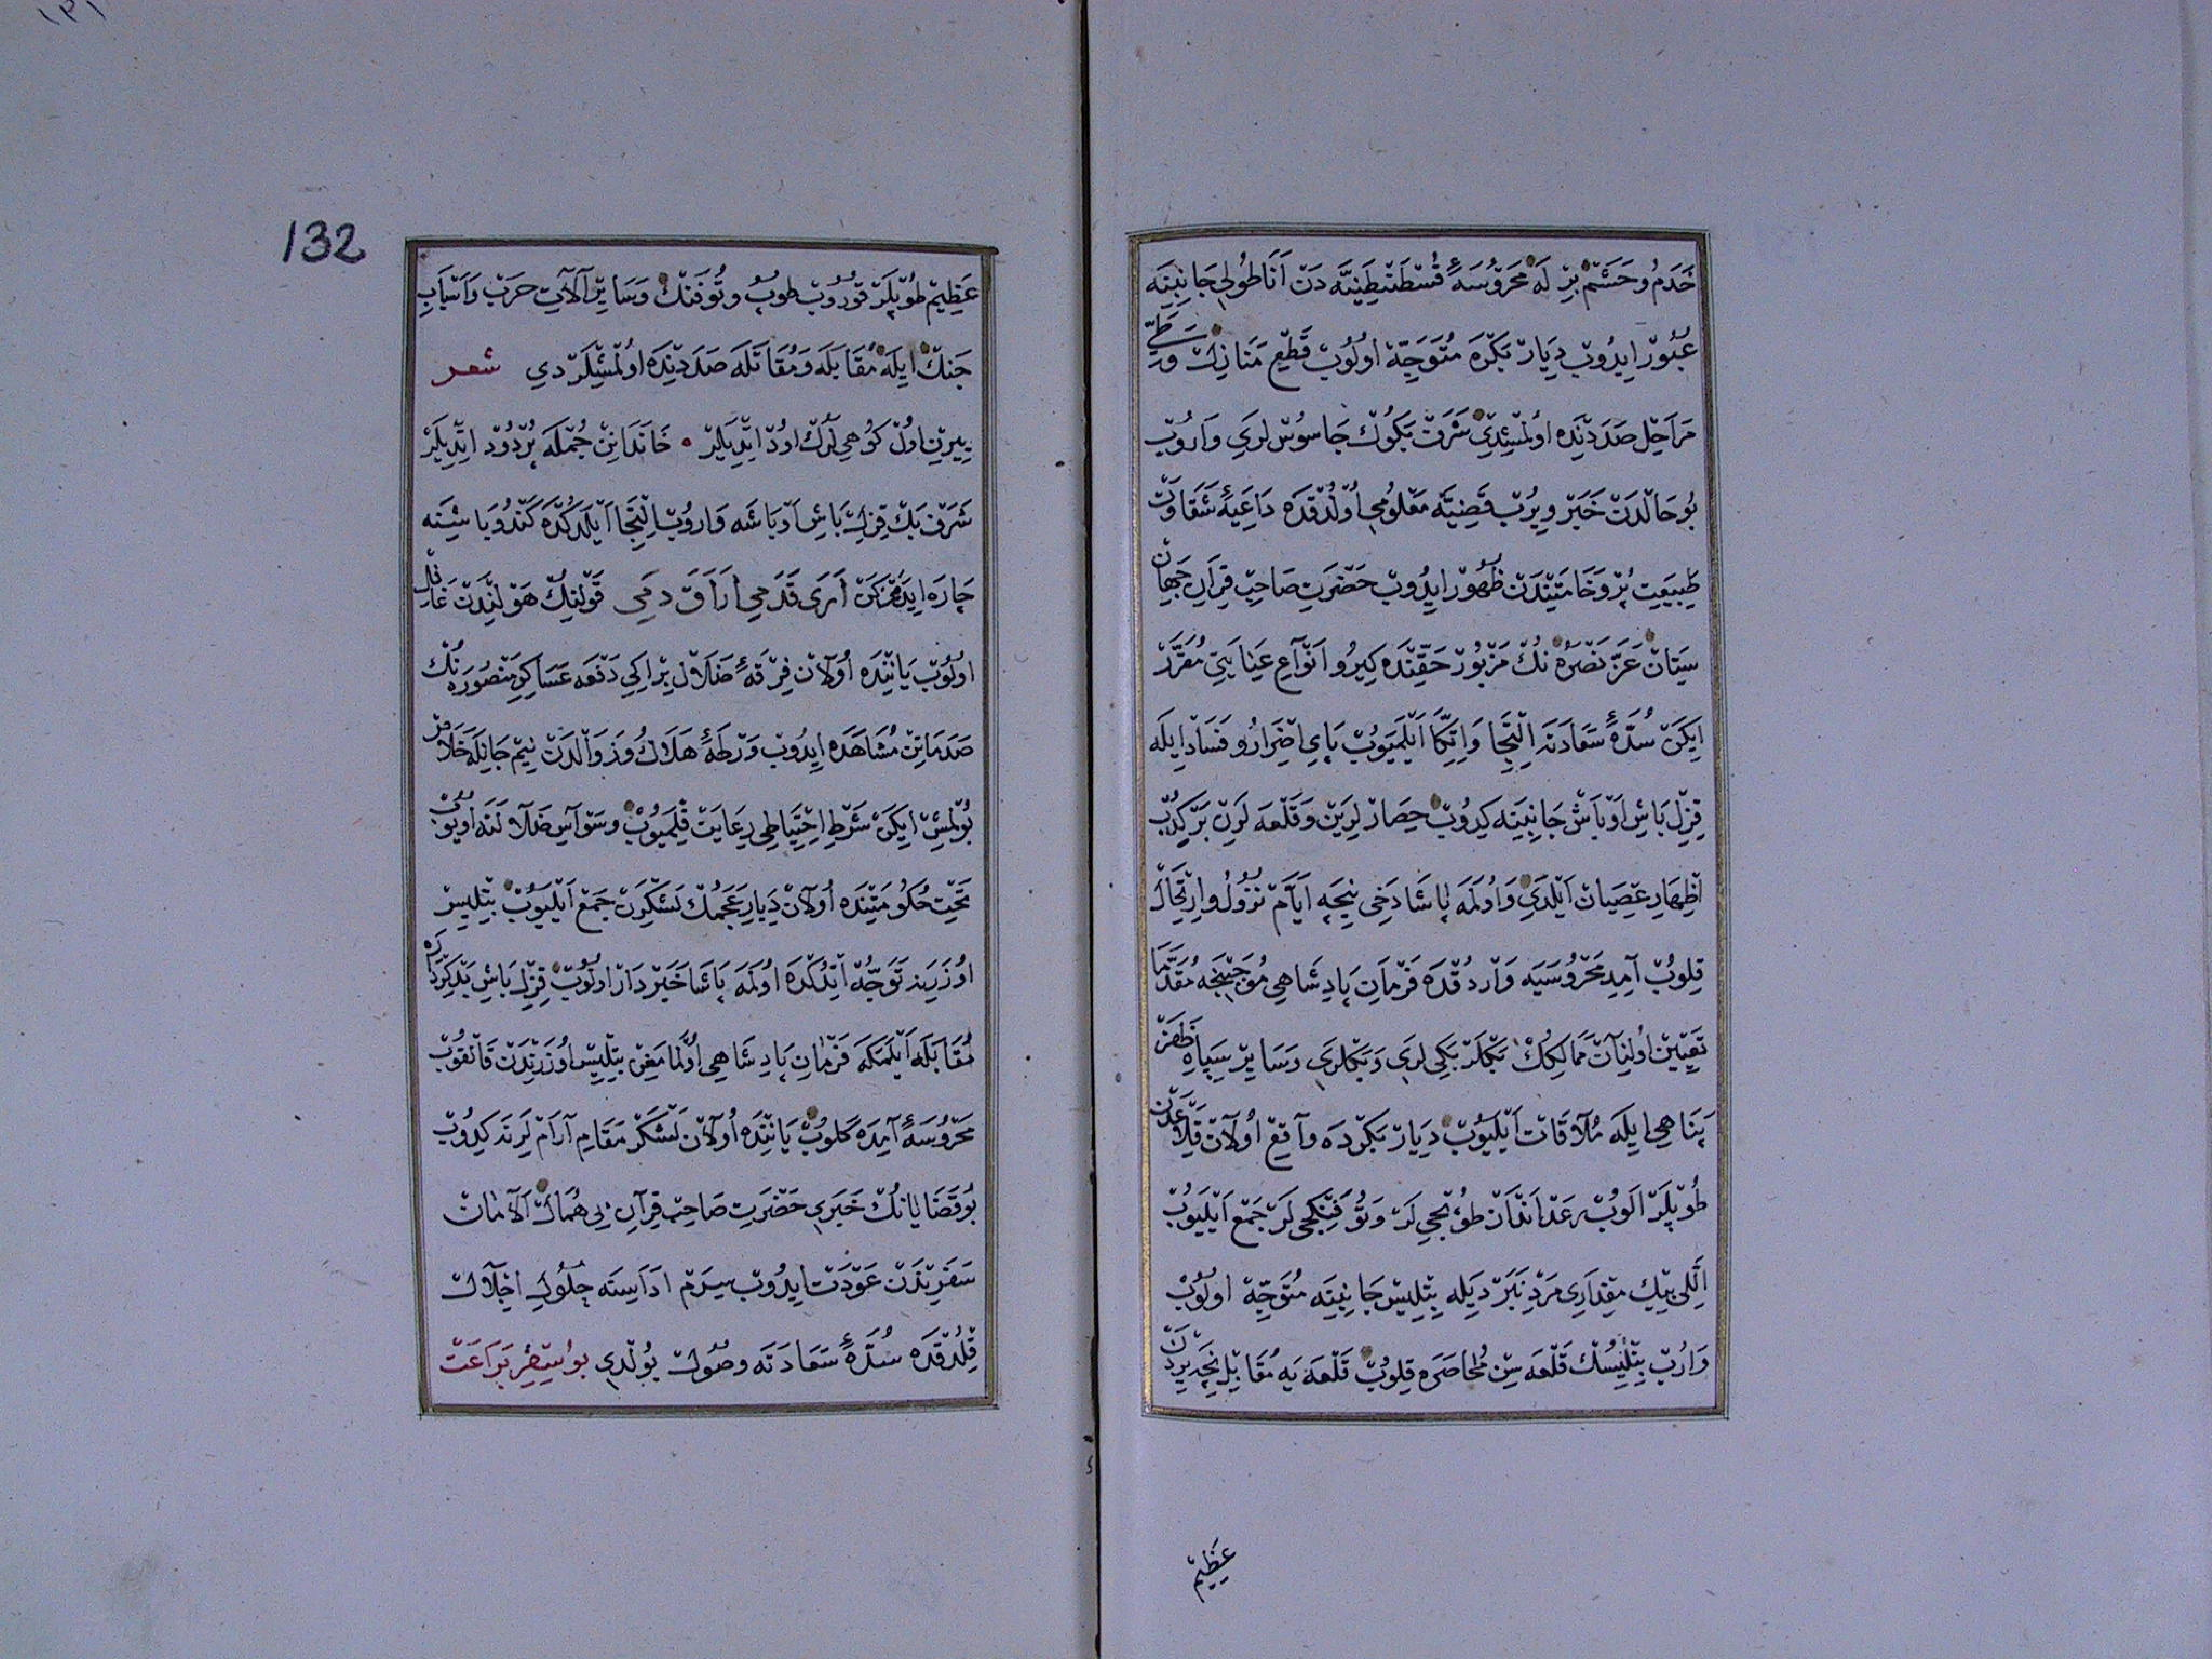 خَدَمُ و حَشَمْ بِرْلَه مَحْرُوسَهٔ قُسْطَنْطِنِيَّه دَنْ اَنَاطُولِی جَانِبِنَه
عُبُورْ ايدُوبْ دِيَارْ بَكْرَه مُتَوَجِّهْ اولُوبْ قَطْعِ مَنَازِلْ وَ طَیِّ
مَرَاحِلْ صَدَدِنْدَه اولْمِشْدِی شَرَفْ بَكُوكْ جَاسُوسْ لَرِی وَارُوبْ
بُو حَالْدَنْ خَبَرْ ويرُبْ قَضِيَّه مَعْلُومِی اُولْدُقْدَه دَاعِيَهٔ شَقَاوَتْ
طَبِيعَتِ پُرْ وَخَامَتِنْدَنْ ظُهُورْ ايدُوبْ حَضْرَتِ صَاحِبْ قِرَانِ جَهَانْ
سِتَانْ عَزَّ نَصْرُهْ نُكْ مَزْبُورْ حَقِّنْدَه كِيرُو اَنْوَاعِ عِنَايَتِی مُقَرَّرْ
ايكَنْ سُدَّهٔ سَعَادَتَه اِلْتِجَا وَ اِتِّكَا اَيْلَمَيُوبْ پَایِ اِضْرَارُ و فَسَادْ ايلَه
قِزِلْ بَاشِ اَوْبَاشْ جَانِبِنَه كيدُوبْ حِصَارْ لَرِينْ وَ قَلْعَه لَرِنْ بَرْكِدُبْ
اِظْهَارِ عِصْيَانْ اَيْلَدِی وَ اُولَمَه پَاشَا دَخِی نِيجَه اَيَّامْ نُزُولُ و اِرْتِحَالْ
قِلُوبْ آمِدِ مَحْرُوسَيَه وَارْدُقْدَه فَرْمَانِ پَادِشَاهِی مُوجَبِنْجَه مُقَدَّمَا
تَعْيِينْ اُولِنَانْ مَمَالِكُكْ بَكْلَرْبَكِی لَرِی وَ بَكْلَرِی وَ سَايِرْ سِپَاهِ ظَفَرْ
پَنَاهِی ايلَه مُلَاقَاتْ اَيْلَيُوبْ دِيَارْ بَكْرْدَه وَاقِعْ اُولَانْ قِلَاعْدَنْ
طُوپْلَرْ الُوبْ رَعْدْ اَنْدَازْ طُوپْجِی لَرْ وَ تُوفَنْكْجِی لَرْ جَمْعْ اَيْلَيُوبْ
اَلْلِی بِيكْ مِقْدَارِی مَرْدِ نَبَرْدَيلَه بِتْلِيسْ جَانِبِنَه مُتَوَجِّهْ اولُوبْ
وَارُبْ بِتْلِيسُكْ قَلْعَه سِنْ مُحَاصَرَه قِلُوبْ قَلْعَه يَه مُقَابِلْ نِيجَه يِرْدَنْ
عَظِيمْ
132
عَظِيمْ طُوپْلَرْ قُورُوبْ طوپُ و تُوفَنْكْ وَ سَايِرْ آلَاتِ حَرْبْ وَ اَسْبَابِ
جَنْكْ ايلَه مُقَابَلَه وَ مُقَاتَلَه صَدَدِنْدَه اولْمِشْلَرْدِی شعر
يِيرِنِ اولْ كُوهِی لَرُكْ اودْ ايتْدِيلَرْ • خَانَدَانِنْ جُمْلَه پُرْدُودْ ايتْدِيلَرْ
شَرَفْ بَكْ قِزِلْ بَاشِ اَوْبَاشَه وَارُوبْ اِلْتِجَا اَيْلَدُكْدَه كَنْدُو بَاشِنَه
چَارَه ايدَمَزْكَنْ اَرَی قَدَمِی اَرَاقَ دَمِی قَوْلِنِكْ هَوْلِنْدَنْ غَافِلْ
اولُوبْ يَانِنْدَه اُولَانْ فِرْقَهٔ ضَلَالْ بِرْ اِيكِی دَفْعَه عَسَاكِرِ مَنْصُورَه نُكْ
صَدَمَاتِنْ مُشَاهَدَه ايدُوبْ وَرْطَهٔ هَلَاكُ و زَوَالْدَنْ نِيمْ جَانِلَه خَلَاصْ
بُولْمِشْ ايكَنْ شَرْطِ اِحْتِيَاطِی رِعَايَتْ قِلْمَيُوبْ وَسْوَاسِ ضَلَالَتَه اُويُوبْ
تَحْتِ حُكُومَتِنْدَه اُولَانْ دِيَارِ عَجَمُكْ لَشْكَرِنْ جَمْعْ اَيْلَيُوبْ بِتْلِيسْ
اُوزَرِينَه تَوَجُّهْ ايتْدُكْدَه اُولَمَه پَاشَا خَبَرْدَارْ اولُوبْ قِزِلْ بَاشِ بَدْكِرْدَارَه
مُقَابَلَه اَيْلَمَكَه فَرْمَانِ پَادِشَاهِی اُولْمَامَغِنْ بِتْلِيسْ اُوزَرِنْدَنْ قَالْقُوبْ
مَحْرُوسَهٔ آمِدَه كَلُوبْ يَانِنْدَه اُولَانْ لَشْكَرْ مَقَامِ آرَامْ لَرِنَه كيدُوبْ
بُو قَضَايَانُكْ خَبَرِی حَضْرَتِ صَاحِبْ قِرَانِ بِی هُمَالْ آلَامَانْ
سَفَرِنْدَنْ عَوْدَتْ ايدُوبْ سِيرَمْ اَدَاسِنَه جُلُوسِ اِجْلَالْ
قِلْدُقْدَه سُدَّهٔ سَعَادَتَه وصُولْ بُولْدِی بو اسيضر بَرَاعَتْ